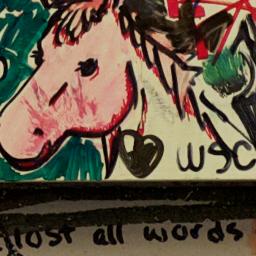 wsc
lost all words